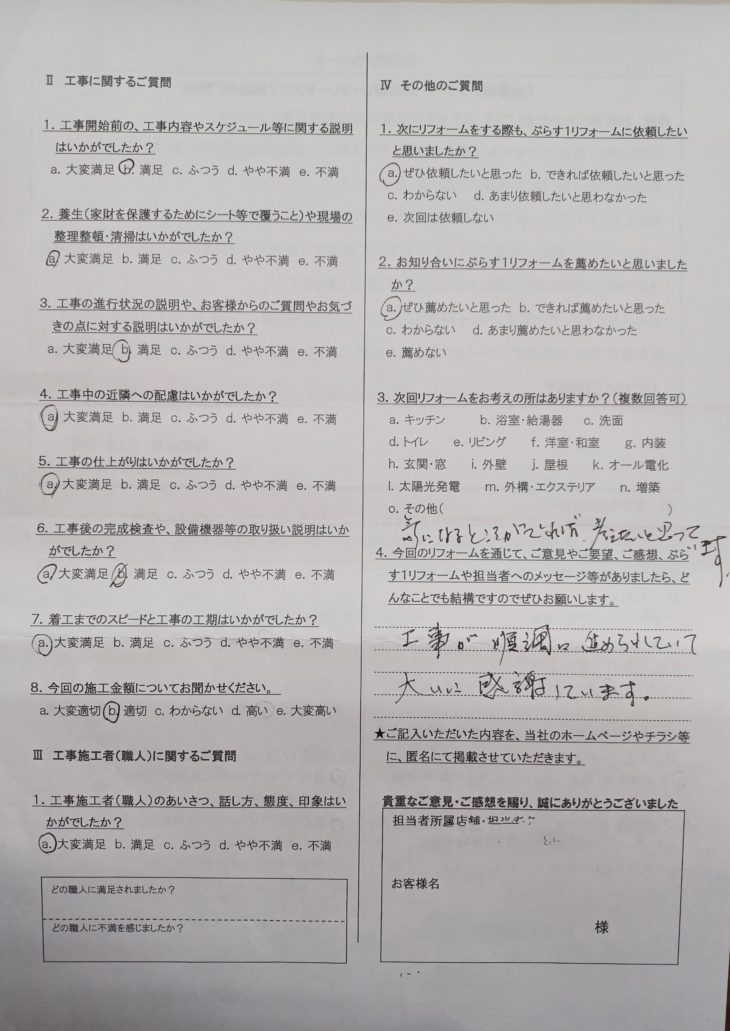 Ⅱ 工事に関するご質問
1. 工事開始前の、工事内容やスケジュール等に関する説明
はいかがでしたか？
a. 大変満足 b. 満足 c. ふつう d. やや不満 e. 不満
2. 養生(家財を保護するためにシート等で覆うこと)や現場の
整理整頓・清掃はいかがでしたか？
a. 大変満足 b. 満足 c. ふつう d. やや不満 e. 不満
3. 工事の進行状況の説明や、お客様からのご質問やお気づ
きの点に対する説明はいかがでしたか？
a. 大変満足 b. 満足 c. ふつう d. やや不満 e. 不満
4. 工事中の近隣への配慮はいかがでしたか？
a. 大変満足 b. 満足 c. ふつう d. やや不満 e. 不満
5. 工事の仕上がりはいかがでしたか？
a. 大変満足 b. 満足 c. ふつう d. やや不満 e. 不満
6. 工事後の完成検査や、設備機器等の取り扱い説明はいか
がでしたか？
a. 大変満足 b. 満足 c. ふつう d. やや不満 e. 不満
7. 着工までのスピードと工事の工期はいかがでしたか？
a. 大変満足 b. 満足 c. ふつう d. やや不満 e. 不満
8. 今回の施工金額についてお聞かせください。
a. 大変適切 b. 適切 c. わからない d. 高い e. 大変高い
Ⅲ 工事施工者(職人)に関するご質問
1. 工事施工者(職人)のあいさつ、話し方、態度、印象はい
かがでしたか？
a. 大変満足 b. 満足 c. ふつう d. やや不満 e. 不満
どの職人に満足されましたか？
どの職人に不満を感じましたか？
Ⅳ その他のご質問
1. 次にリフォームをする際も、ぷらす1リフォームに依頼したい
と思いましたか？
a. ぜひ依頼したいと思った b. できれば依頼したいと思った
c. わからない d. あまり依頼したいと思わなかった
e. 次回は依頼しない
2. お知り合いにぷらす1リフォームを薦めたいと思いました
か？
a. ぜひ薦めたいと思った b. できれば薦めたいと思った
c. わからない d. あまり薦めたいと思わなかった
e. 薦めない
3. 次回リフォームをお考えの所はありますか？(複数回答可)
a. キッチン b. 浴室・給湯器 c. 洗面
d. トイレ e. リビング f. 洋室・和室 g. 内装
h. 玄関・窓 i. 外壁 j. 屋根 k. オール電化
l. 太陽光発電 m. 外構・エクステリア n. 増築
o. その他( )
気になるところがでれば、考えたいと思って
ます。
4. 今回のリフォームを通じて、ご意見やご要望、ご感想、ぷら
す1リフォームや担当者へのメッセージ等がありましたら、ど
んなことでも結構ですのでぜひお願いします。
工事が順調に進められていて
大いに感謝しています。
★ご記入いただいた内容を、当社のホームページやチラシ等
に、匿名にて掲載させていただきます。
貴重なご意見・ご感想を賜り、誠にありがとうございました
担当者所属店舗・
お客様名
様